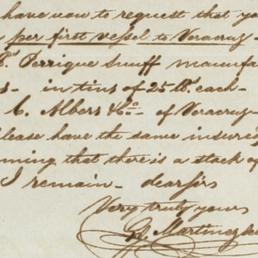 have now to request that yo
per first vessel to Veracruz
Perrique Snuff manufa
s - in tins of 25 lb. each -
C. Albers & Co - of Veracruz
please have the same insured
ming that there is a stack of
I remain - dear sirs
Very truly yours
Martinez